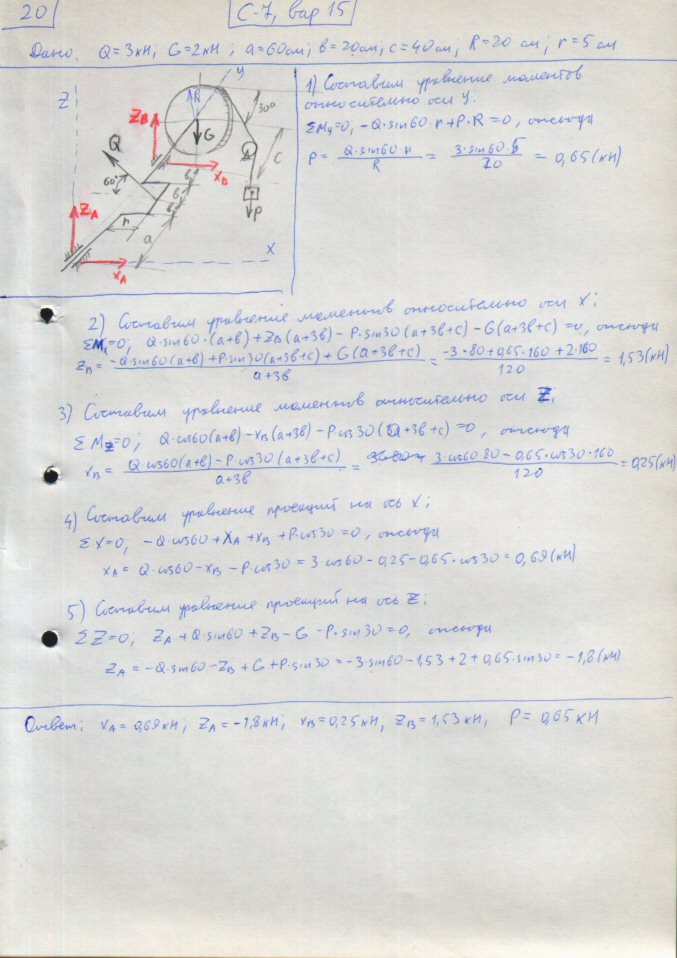 20
С-7, вар 15
Дано: Q=3кН; G=2кН; a=60см; в=20см; с=40см; R=20 см; r=5 см
Z
y
R
30°
ZB
G
Q
C
60°
xB
в
в
в
P
ZA
r
a
X
xA
1) Составим уравнение моментов
относительно оси y.
ΣMy=0, -Q·sin60·r+P·R=0, отсюда
P = Q·sin60·r / R = 3·sin60·5 / 20 = 0,65(кН)
2) Составим уравнение моментов относительно оси X;
ΣMx=0; Q·sin60·(a+в)+ZB(a+3в)-P·sin30(a+3в+с)-G(a+3в+с)=0, отсюда
ZB = -Q·sin60(a+в)+P·sin30(a+3в+с)+G(a+3в+с) / a+3в = -3·80+0,65·160+2·160 / 120 = 1,53(кН)
3) Составим уравнение моментов относительно оси Z;
ΣMZ=0; Q·cos60(a+в)-xB(a+3в)-Pcos30(a+3в+с)=0, отсюда
xB = Qcos60(a+в)-Pcos30(a+3в+с) / a+3в = 3·cos60·80-0,65·cos30·160 / 120 = 0,25(кН)
4) Составим уравнение проекций на ось X;
ΣX=0, -Q·cos60+XA+xB+P·cos30=0, отсюда
xA = Q·cos60-xB-P·cos30 = 3cos60-0,25-0,65·cos30 = 0,69(кН)
5) Составим уравнение проекций на ось Z;
ΣZ=0; ZA+Q·sin60+ZB-G-P·sin30=0, отсюда
ZA = -Q·sin60-ZB+G+P·sin30 = -3·sin60-1,53+2+0,65·sin30 = -1,8(кН)
Ответ: xA=0,69кН; ZA=-1,8кН; xB=0,25кН, ZB=1,53кН, P=0,65кН